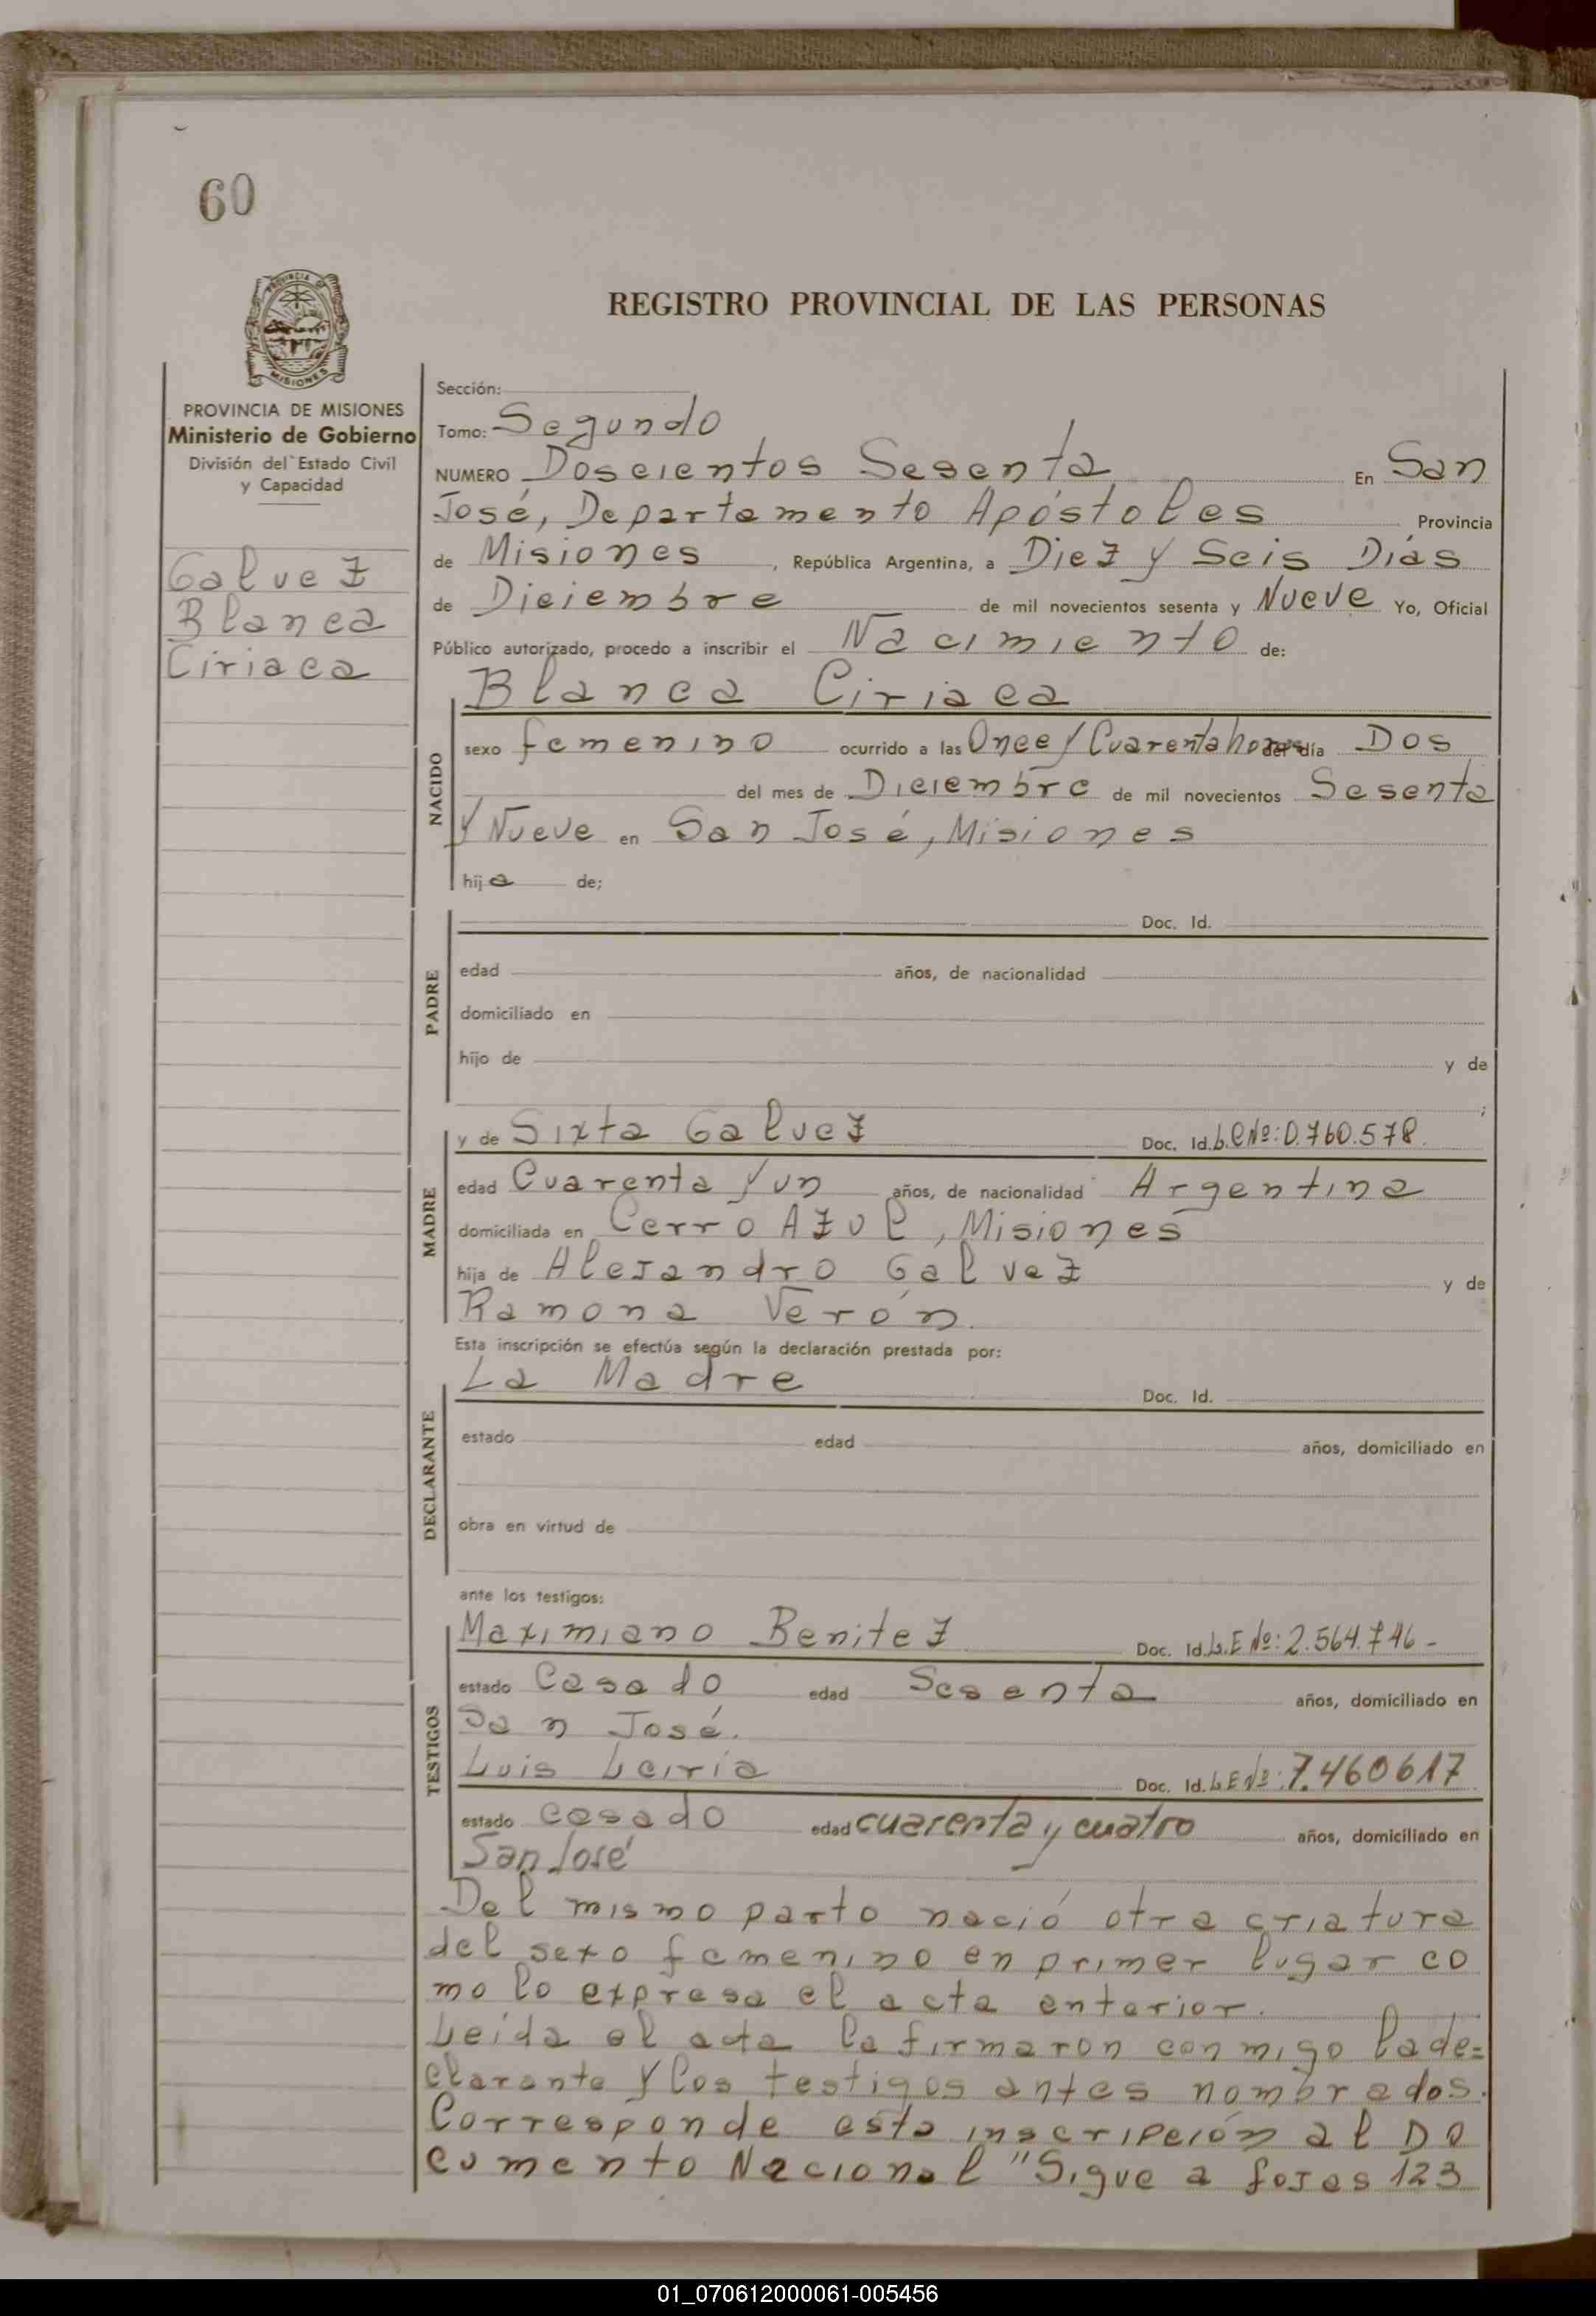 60
PROVINCIA DE
MISIONES
REGISTRO PROVINCIAL DE LAS PERSONAS
PROVINCIA DE MISIONES
Ministerio de Gobierno
División del Estado Civil
y Capacidad
Galvez
Blanca
Ciriaca
Sección:
Tomo: Segundo
NUMERO Doscientos Sesenta En San
José, Departamento Apóstoles Provincia
de Misiones , República Argentina, a Diez y Seis Días
de Diciembre de mil novecientos sesenta y Nueve Yo, Oficial
Público autorizado, procedo a inscribir el Nacimiento de:
Blanca Ciriaca
NACIDO
sexo femenino ocurrido a las Once y Cuarenta horas del día Dos
del mes de Diciembre de mil novecientos Sesenta
y Nueve en San José, Misiones
hija de;
PADRE
Doc. Id.
edad años, de nacionalidad
domiciliado en
hijo de y de
;
MADRE
y de Sixta Galvez Doc. Id. L.C Nº: 0.760.578
edad Cuarenta y un años, de nacionalidad Argentina
domiciliada en Cerro Azul, Misiones
hija de Alejandro Galvez y de
Ramona Verón.
Esta inscripción se efectúa según la declaración prestada por:
DECLARANTE
La Madre Doc. Id.
estado edad años, domiciliado en
obra en virtud de
ante los testigos:
TESTIGOS
Maximiano Benitez Doc. Id. L.E Nº: 2.564.746-
estado Casado edad Sesenta años, domiciliado en
San José.
Luis Leiria Doc. Id. L E Nº: 7.460617
estado casado edad cuarenta y cuatro años, domiciliado en
San José
Del mismo parto nació otra criatura
del sexo femenino en primer lugar co
mo lo expresa el acta anterior.
Leída el acta la firmaron conmigo la de=
clarante y los testigos antes nombrados.
Corresponde esta inscripción al Do
cumento Nacional "Sigue a fojas 123
01_070612000061-005456